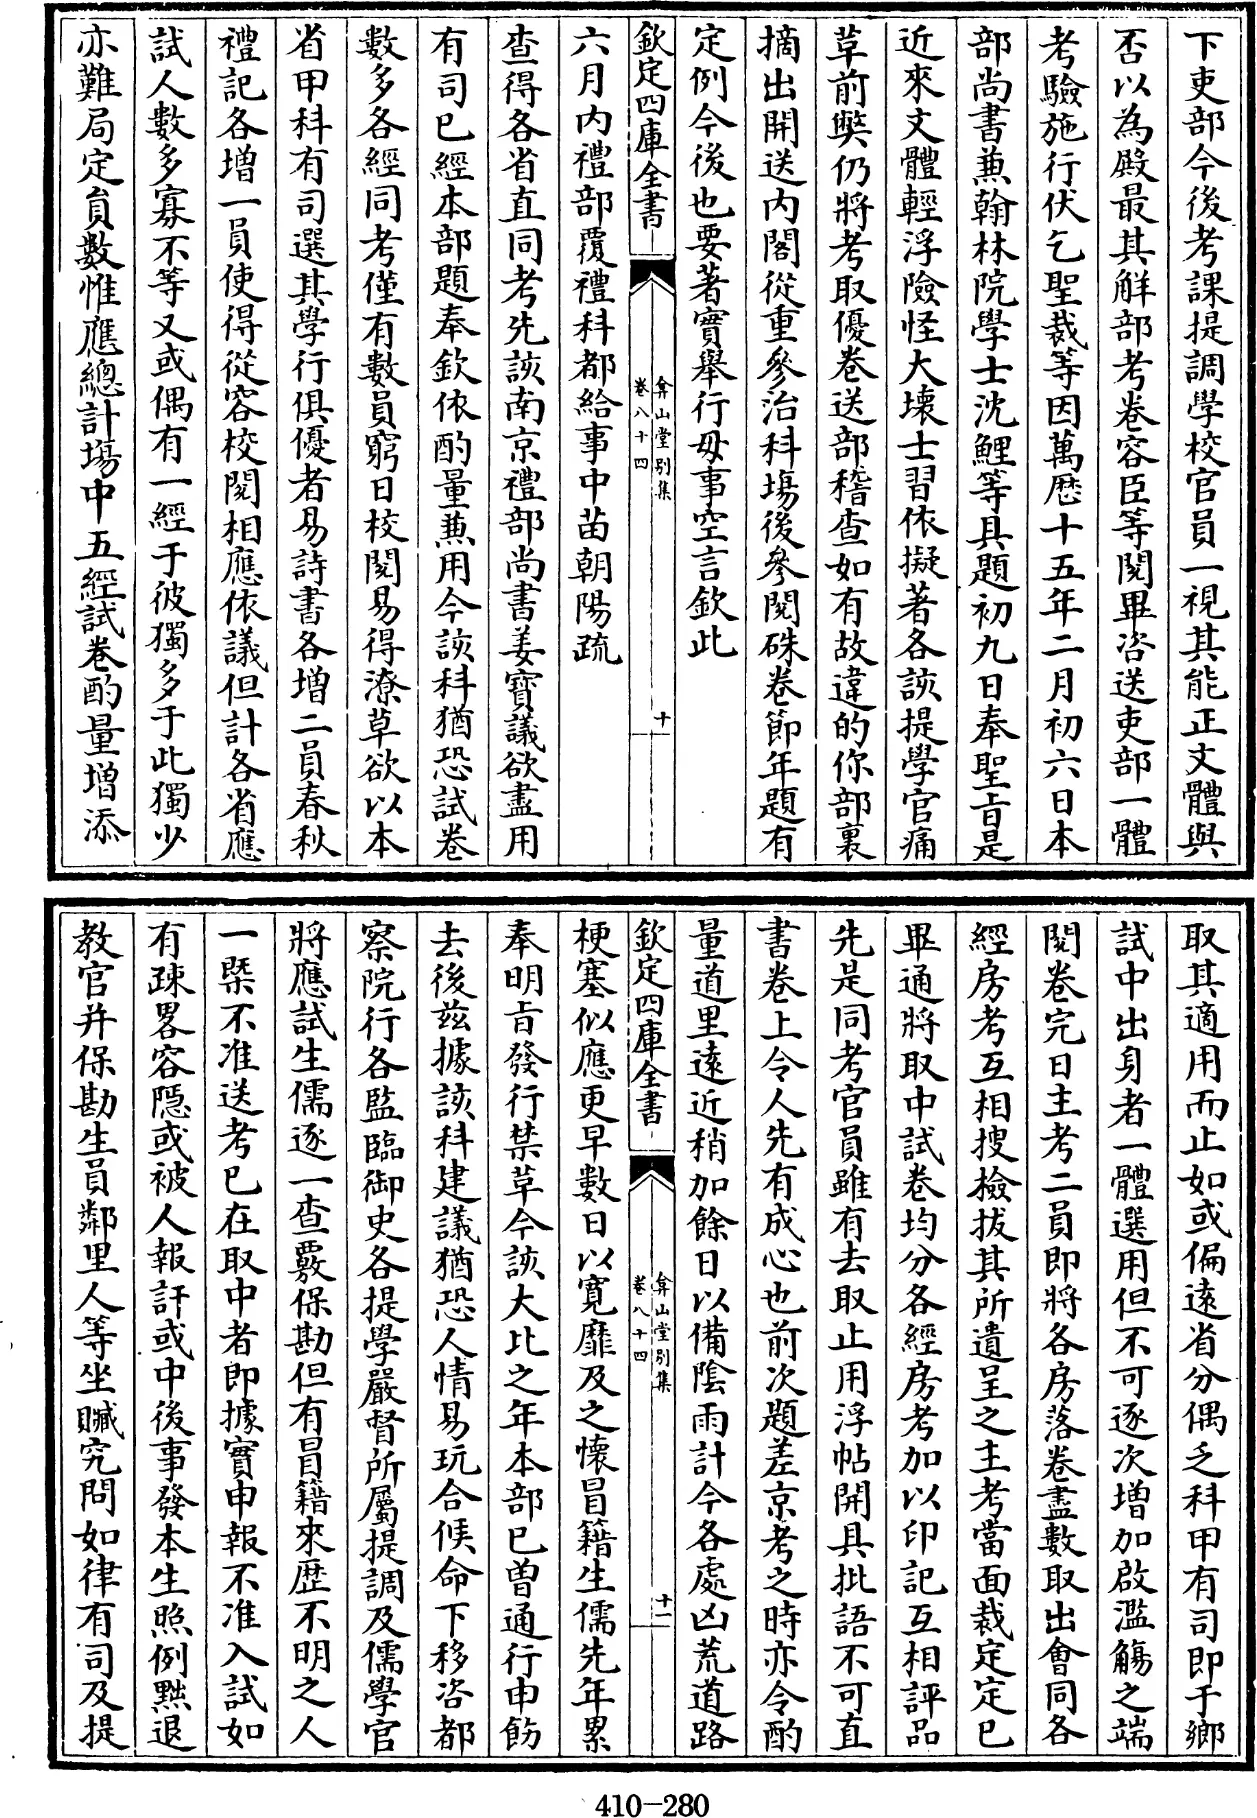 下吏部今後考課提調學校官員一視其能正文體與
否以為殿最其解部考卷容臣等閱畢咨送吏部一體
考驗施行伏乞聖裁等因萬厯十五年二月初六日本
部尚書兼翰林院學士沈鯉等具題初九日奉聖旨是
近來文體輕浮險怪大壞士習依擬著各該提學官痛
革前弊仍將考取優卷送部稽查如有故違的你部裏
摘出開送内閣從重參治科場後參閱硃卷節年題有
定例今後也要著實舉行毋事空言欽此
欽定四庫全書
弇山堂别集
卷八十四
十
六月内禮部覆禮科都給事中苗朝陽疏
查得各省直同考先該南京禮部尚書姜寳議欲盡用
有司已經本部題奉欽依酌量兼用今該科猶恐試卷
數多各經同考僅有數員窮日校閱易得潦草欲以本
省甲科有司選其學行俱優者易詩書各增二員春秋
禮記各增一員使得從容校閱相應依議但計各省應
試人數多寡不等又或偶有一經于彼獨多于此獨少
亦難局定員數惟應總計場中五經試卷酌量增添
取其適用而止如或偏遠省分偶乏科甲有司即于鄉
試中出身者一體選用但不可逐次增加啟濫觴之端
閱卷完日主考二員即將各房落卷盡數取出會同各
經房考互相搜檢拔其所遺呈之主考當面裁定定已
畢通將取中試卷均分各經房考加以印記互相評品
先是同考官員雖有去取止用浮帖開具批語不可直
書卷上令人先有成心也前次題差京考之時亦令酌
量道里遠近稍加餘日以備陰雨計今各處凶荒道路
欽定四庫全書
弇山堂别集
卷八十四
十一
梗塞似應更早數日以寛靡及之懷冒籍生儒先年累
奉明旨發行禁革今該大比之年本部已曽通行申飭
去後兹據該科建議猶恐人情易玩合候命下移咨都
察院行各監臨御史各提學嚴督所屬提調及儒學官
將應試生儒逐一查覈保勘但有冒籍來歴不明之人
一槩不准送考已在取中者即據實申報不准入試如
有疎畧容隠或被人報訐或中後事發本生照例黜退
教官并保勘生員鄰里人等坐贓究問如律有司及提
410-280